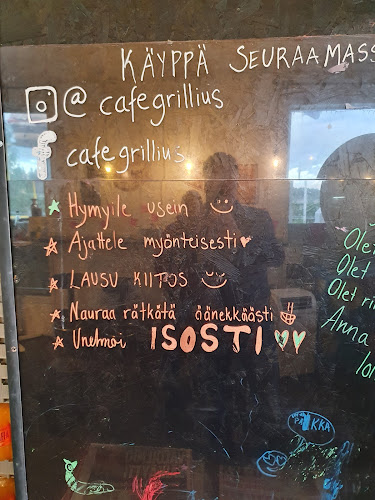 KÄYPPÄ SEURAAMASS
@cafegrillius
cafegrillius
Hymyile usein
Ajattele myönteisesti
LAUSU KIITOS
Nauraa rätkätä äänekkäästi
Unelmoi ISOSTI
Olet
Olet
Olet ri
Anna